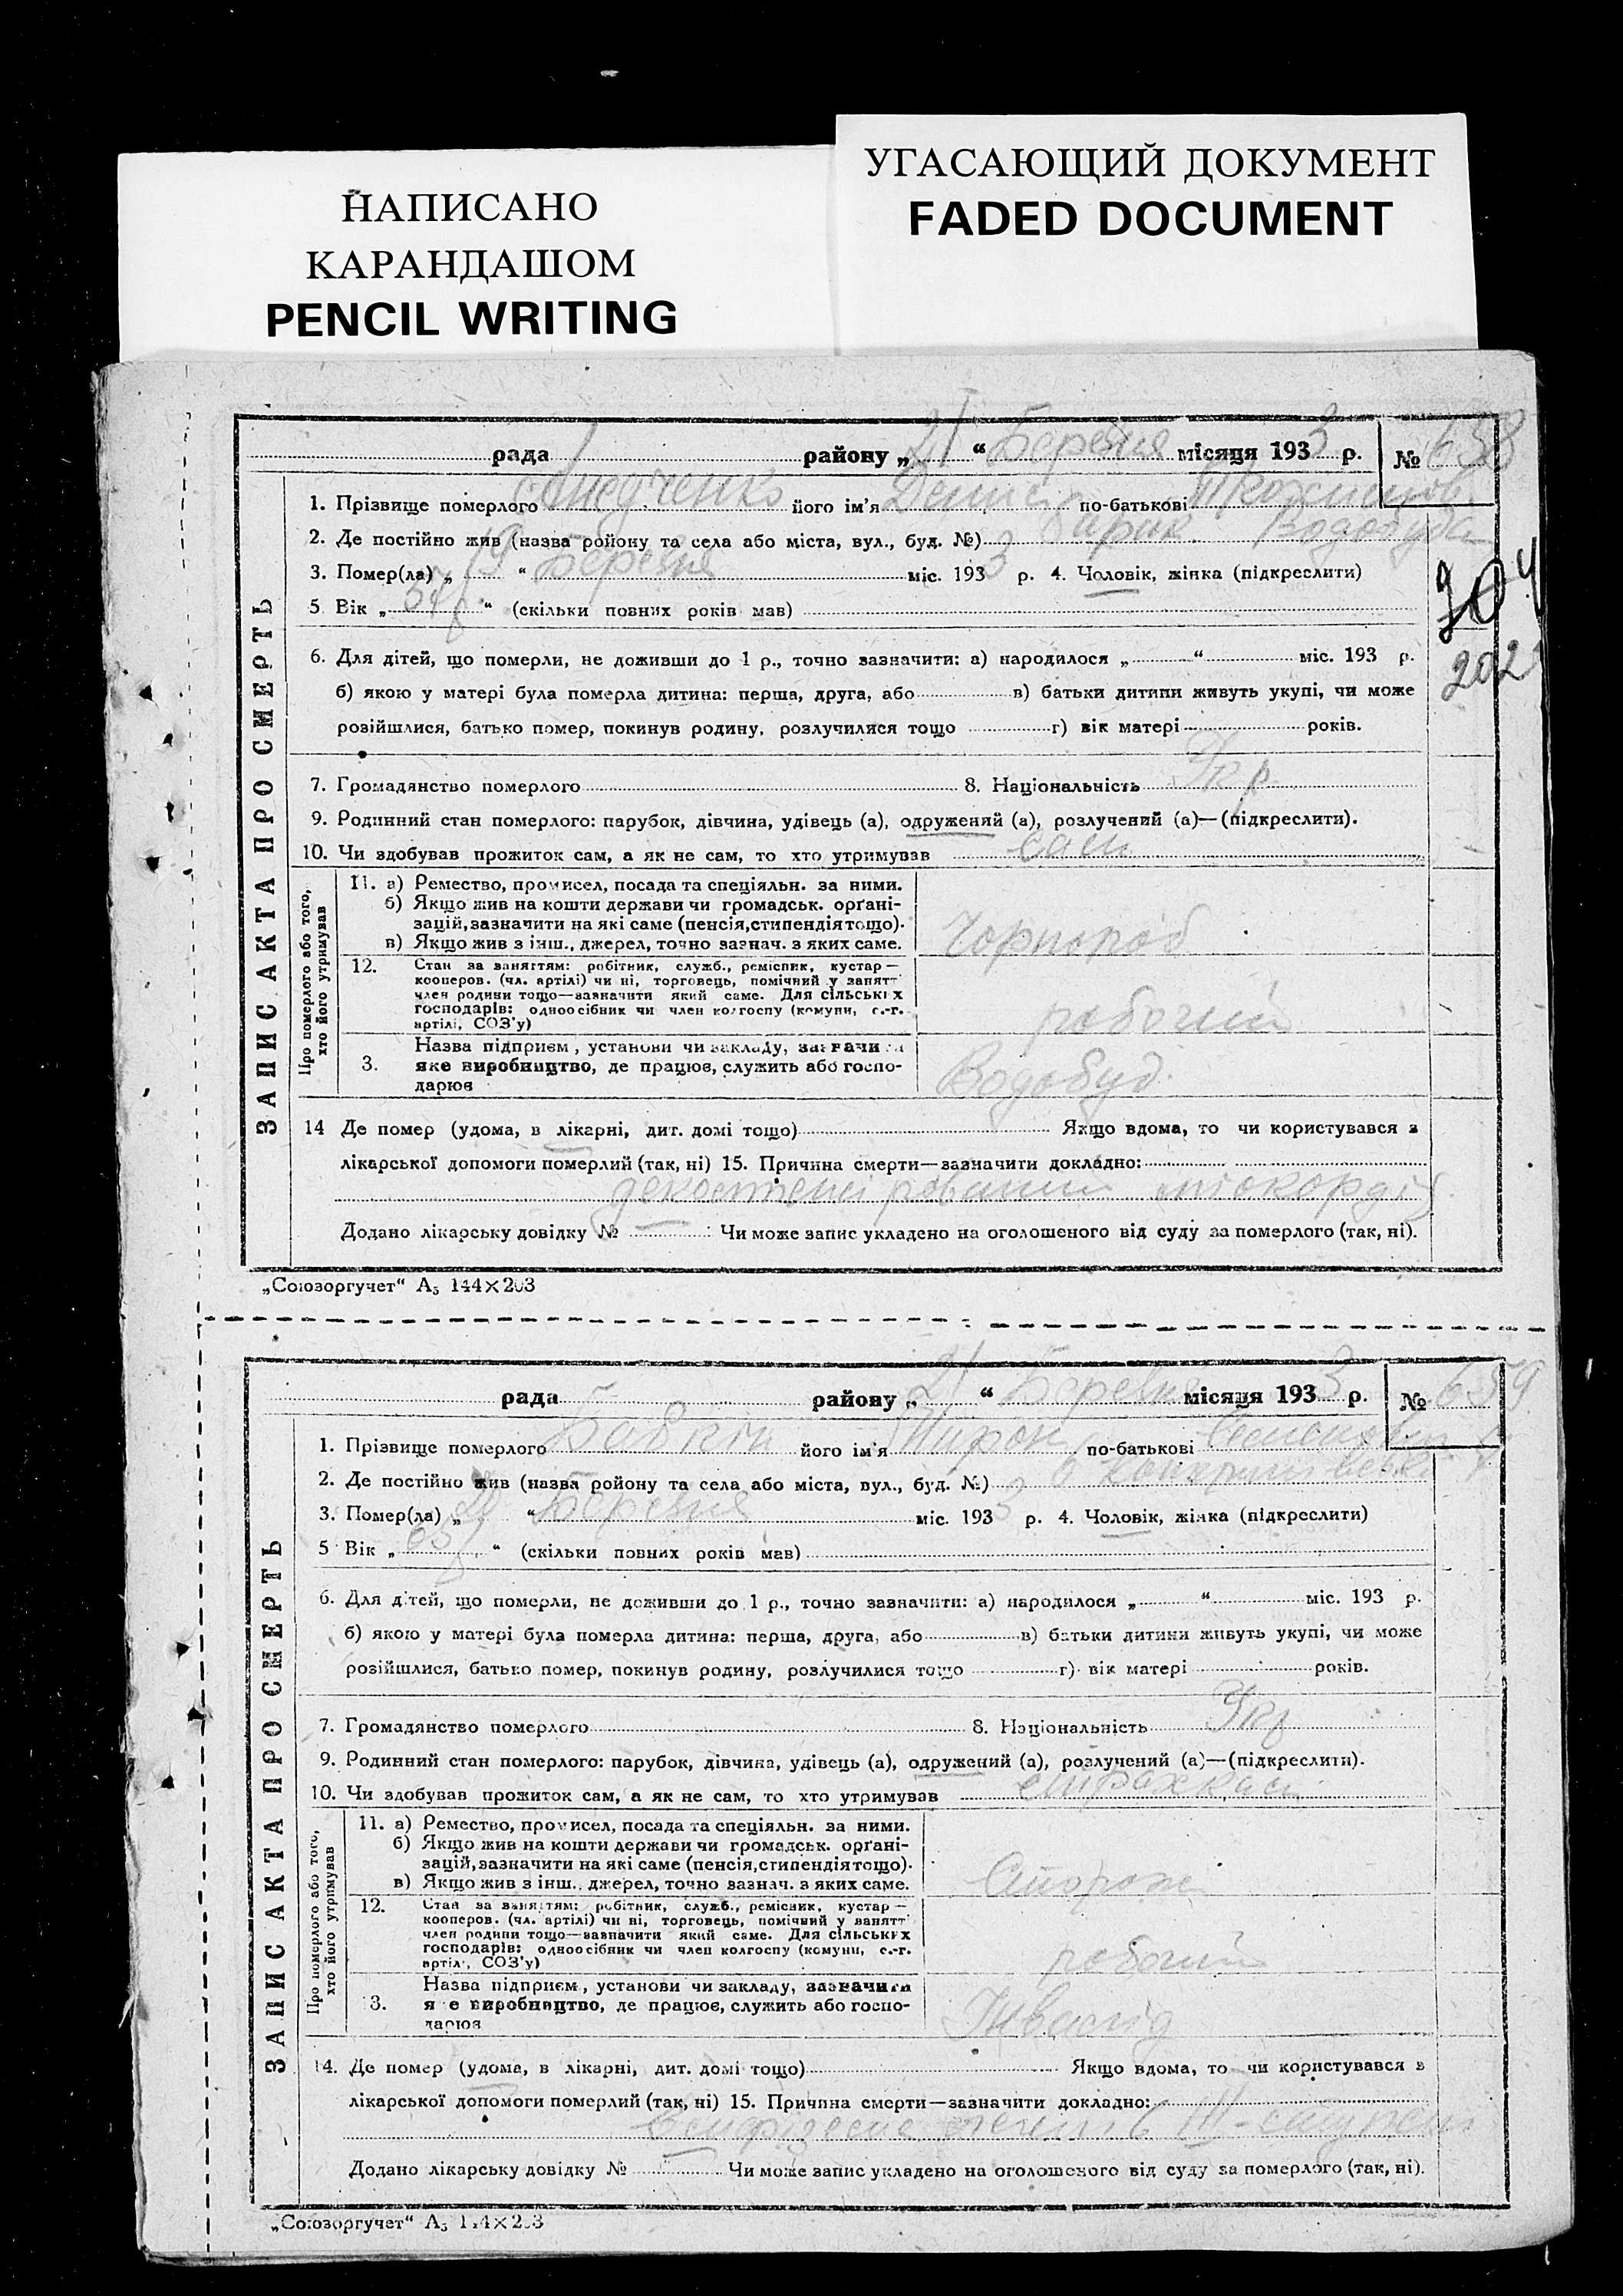 НАПИСАНО
КАРАНДАШОМ
PENCIL WRITING
УГАСАЮЩИЙ ДОКУМЕНТ
FADED DOCUMENT
рада району „ 21 “ Березня місяця 1933 р. № 658
ЗАПИС АКТА ПРО СМЕРТЬ
1. Прізвище померлого його ім'я Денис по-батькові
2. Де постійно жив (назва ройону та села або міста, вул., буд. №) барак. Водобуда
3. Помер(ла) „ 19 “ Березня міс. 1933 р. 4. Чоловік, жінка (підкреслити)
5 Вік „ “ (скільки повних років мав)
204
202
6. Для дітей, що померли, не доживши до 1 р., точно зазначити: а) народилося „ “ міс. 193 р.
б) якою у матері була померла дитина: перша, друга, або в) батьки дитини живуть укупі, чи може
розійшлися, батько помер, покинув родину, розлучилися тощо г) вік матері років.
7. Громадянство померлого 8. Національність Укр
9. Родинний стан померлого: парубок, дівчина, удівець (а), одружений (а), розлучений (а)—(підкреслити).
10. Чи здобував прожиток сам, а як не сам, то хто утримував сам
Про померлого або того,
хто його утримував
11. а) Ремество, промисел, посада та спеціяльн. за ними.
б) Якщо жив на кошти держави чи громадськ. орґані-
зацій, зазначити на які саме (пенсія, стипендія тощо).
в) Якщо жив з інш., джерел, точно зазнач. з яких саме.
Чорнороб
12. Стан за заняттям: робітник, служб., ремісник, кустар—
кооперов. (чл. артілі) чи ні, торговець, помічний у занятт
член родини тощо—зазначити який саме. Для сільських
господарів: одноосібник чи член колгоспу (комуни, с.-г.
артілі, СОЗ'у)
робочий
3. Назва підприєм, установи чи закладу, зазначи
яке виробництво, де працює, служить або госпо-
дарює
Водобуд
14 Де помер (удома, в лікарні, дит. домі тощо) Якщо вдома, то чи користувався з
лікарської допомоги померлий (так, ні) 15. Причина смерти—зазначити докладно:
міокордіт
Додано лікарську довідку № Чи може запис укладено на оголошеного від суду за померлого (так, ні).
„Союзоргучет“ А₅ 144×203
рада району „ 21 “ Березня місяця 1933 р. № 659
ЗАПИС АКТА ПРО СМЕРТЬ
1. Прізвище померлого Бабкін його ім'я Мирон по-батькові Семенович
2. Де постійно жив (назва ройону та села або міста, вул., буд. №)
3. Помер(ла) „ 20 “ Березня міс. 1933 р. 4. Чоловік, жінка (підкреслити)
5 Вік „ 65 “ (скільки повних років мав)
6. Для дітей, що померли, не доживши до 1 р., точно зазначити: а) народилося „ “ міс. 193 р.
б) якою у матері була померла дитина: перша, друга, або в) батьки дитини живуть укупі, чи може
розійшлися, батько помер, покинув родину, розлучилися тощо г) вік матері років.
7. Громадянство померлого 8. Національність Укр
9. Родинний стан померлого: парубок, дівчина, удівець (а), одружений (а), розлучений (а)—(підкреслити).
10. Чи здобував прожиток сам, а як не сам, то хто утримував страхкаси
Про померлого або того,
хто його утримував
11. а) Ремество, промисел, посада та спеціяльн. за ними.
б) Якщо жив на кошти держави чи громадськ. орґані-
зацій, зазначити на які саме (пенсія, стипендія тощо).
в) Якщо жив з інш., джерел, точно зазнач. з яких саме.
Сторож
12. Стан за заняттям: робітник, служб., ремісник, кустар—
кооперов. (чл. артілі) чи ні, торговець, помічний у занятт
член родини тощо—зазначити який саме. Для сільських
господарів: одноосібник чи член колгоспу (комуни, с.-г.
артіл, СОЗ'у)
робочий
3. Назва підприєм, установи чи закладу, зазначити
я е виробництво, де працює, служить або госпо-
дарює
Інвалід
14. Де помер (удома, в лікарні, дит. домі тощо) Якщо вдома, то чи користувався з
лікарської допомоги померлий (так, ні) 15. Причина смерти—зазначити докладно:
III-
Додано лікарську довідку № Чи може запис укладено на оголошеного від суду за померлого (так, ні).
„Союзоргучет“ А₅ 144×203